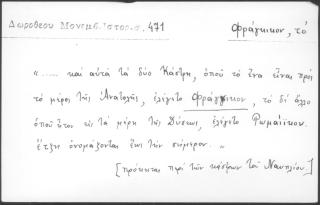 Δωροθέου Μονεμβ. Ἱστορ. σ. 471
Φράγκικον, τό
"..... καὶ αὐτὰ τὰ δύο Κάστρη, ὁποῦ τὸ ἕνα εἶναι πρὸς
τὸ μέρος τῆς Ἀνατολῆς, ἐλέγετο Φράγκικον, τὸ δ' ἄλλο
ὁποῦ ἦτον εἰς τὰ μέρη τῆς Δύσεως, ἐλέγετο Ρωμαίϊκον.
ἔτζη ὀνομάζονται ἕως τὴν σήμερον. "
[πρόκειται περὶ τῶν κάστρων τοῦ Ναυπλίου.]